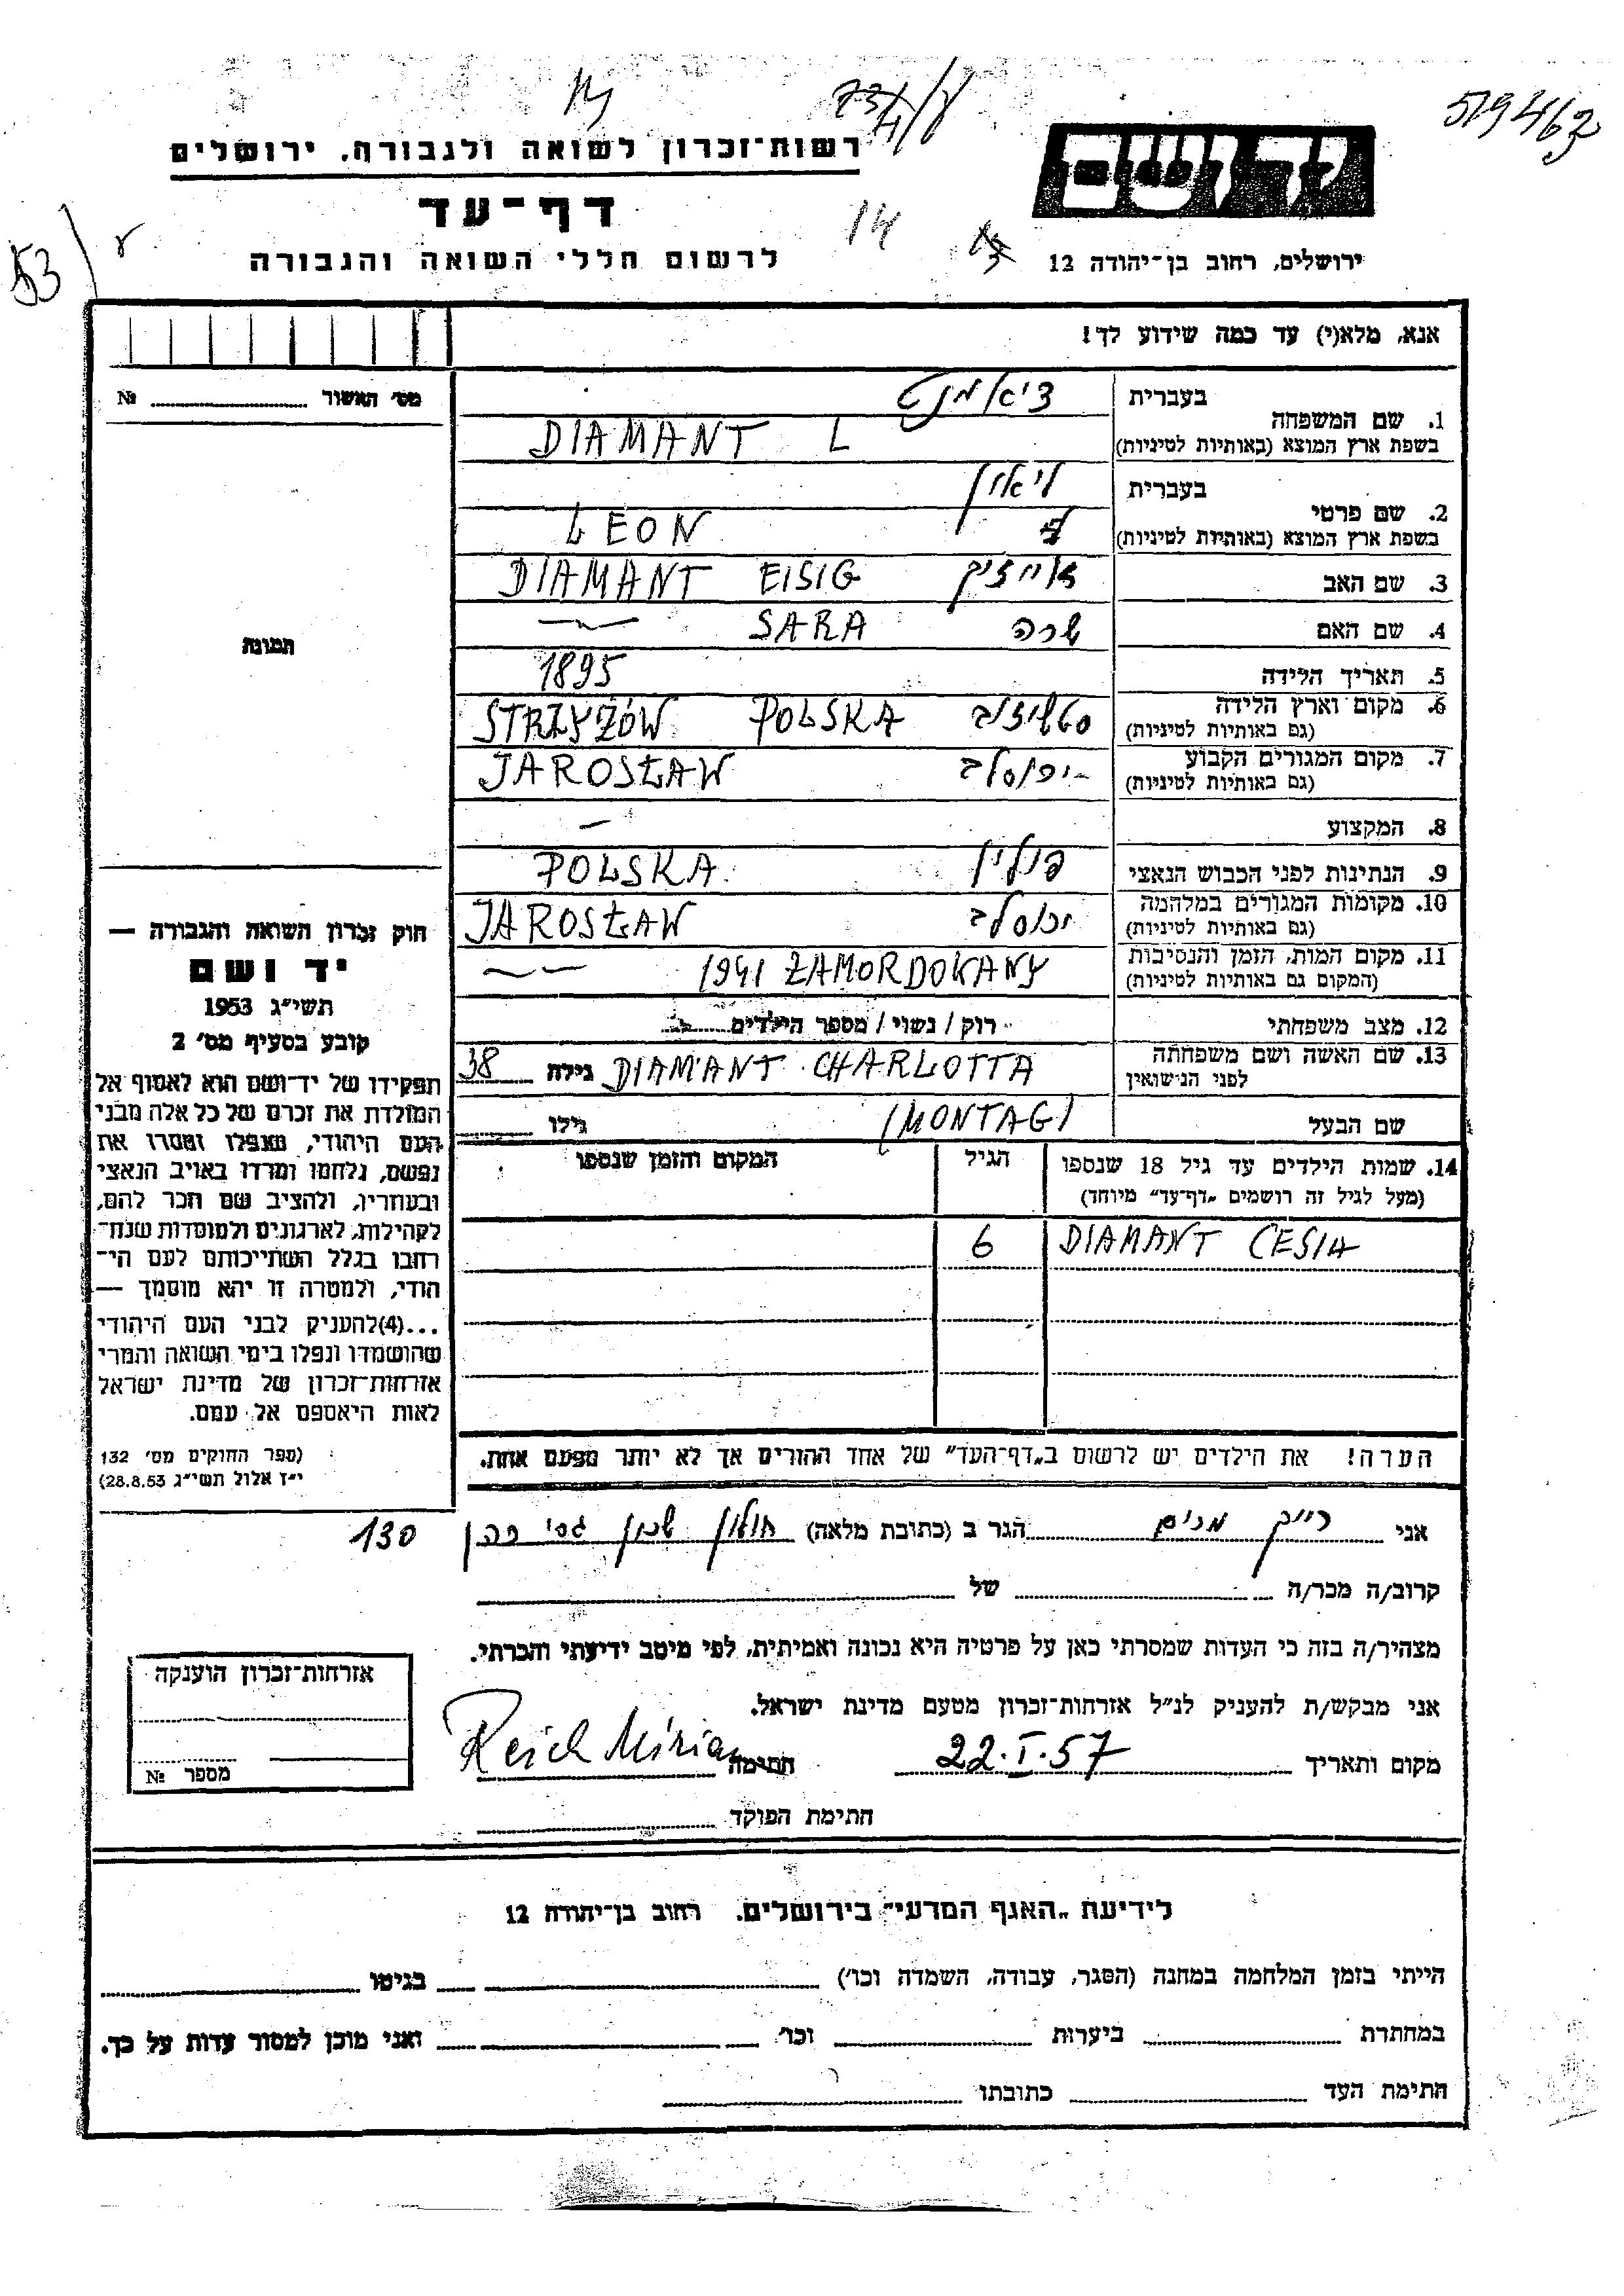 519463
רשות־זכרון לשואה ולגבורה, ירושלים
יד ושם
דף־עד
14
לרשום חללי השואה והגבורה
ירושלים, רחוב בן־יהודה 12
53
אנא, מלא(י) עד כמה שידוע לך!
מס׳ האשור № 
1. שם המשפחה
בעברית דיאמנט
בשפת ארץ המוצא (באותיות לטיניות) DIAMANT L
2. שם פרטי
בעברית ליאון
בשפת ארץ המוצא (באותיות לטיניות) LEON
3. שם האב אייזיק DIAMANT EISIG
4. שם האם שרה SARA
תמונה
5. תאריך הלידה 1895
6. מקום וארץ הלידה (גם באותיות לטיניות) STRZYŻÓW POLSKA
7. מקום המגורים הקבוע (גם באותיות לטיניות) JAROSŁAW
8. המקצוע –
9. הנתינות לפני הכבוש הנאצי פולין POLSKA
10. מקומות המגורים במלחמה (גם באותיות לטיניות) ירוסלב JAROSŁAW
11. מקום המות, הזמן והנסיבות (המקום גם באותיות לטיניות) 1941 ZAMORDOWANY
12. מצב משפחתי רוק / נשוי / מספר הילדים
13. שם האשה ושם משפחתה לפני הנישואין DIAMANT CHARLOTTA גילה 38
שם הבעל (MONTAG) גילו
14. שמות הילדים עד גיל 18 שנספו הגיל המקום והזמן שנספו
(מעל לגיל זה רושמים „דף־עד״ מיוחד)
DIAMANT CESIA 6
הערה! את הילדים יש לרשום ב„דף־העד״ של אחד ההורים אך לא יותר מפעם אחת.
חוק זכרון השואה והגבורה —
יד ושם
תשי״ג 1953
קובע בסעיף מס׳ 2
תפקידו של יד־ושם הוא לאסוף אל
המולדת את זכרם של כל אלה מבני
העם היהודי, שנפלו ומסרו את
נפשם, נלחמו ומרדו באויב הנאצי
ובעוזריו, ולהציב שם וזכר להם,
לקהילות, לארגונים ולמוסדות שנח־
רבו בגלל השתייכותם לעם הי־
הודי, ולמטרה זו יהא מוסמך —
...(4)להעניק לבני העם היהודי
שהושמדו ונפלו בימי השואה והמרי
אזרחות־זכרון של מדינת ישראל
לאות היאספם אל עמם.
(ספר החוקים מס׳ 132
י״ז אלול תשי״ג 28.8.53)
אני רייך מרים הגר ב (כתובת מלאה) חולון שכון ג׳סי כהן 130
קרוב/ה מכר/ה של
מצהיר/ה בזה כי העדות שמסרתי כאן על פרטיה היא נכונה ואמיתית, לפי מיטב ידיעתי והכרתי.
אני מבקש/ת להעניק לנ״ל אזרחות־זכרון מטעם מדינת ישראל.
מקום ותאריך 22.I.57 חתימה Reich Miriam
חתימת הפוקד
אזרחות־זכרון הוענקה
מספר №
לידיעת „האגף המדעי״ בירושלים, רחוב בן־יהודה 12
הייתי בזמן המלחמה במחנה (הסגר, עבודה, השמדה וכו׳) בגיטו
במחתרת ביערות וכו׳ ואני מוכן למסור עדות על כך.
חתימת העד כתובתו